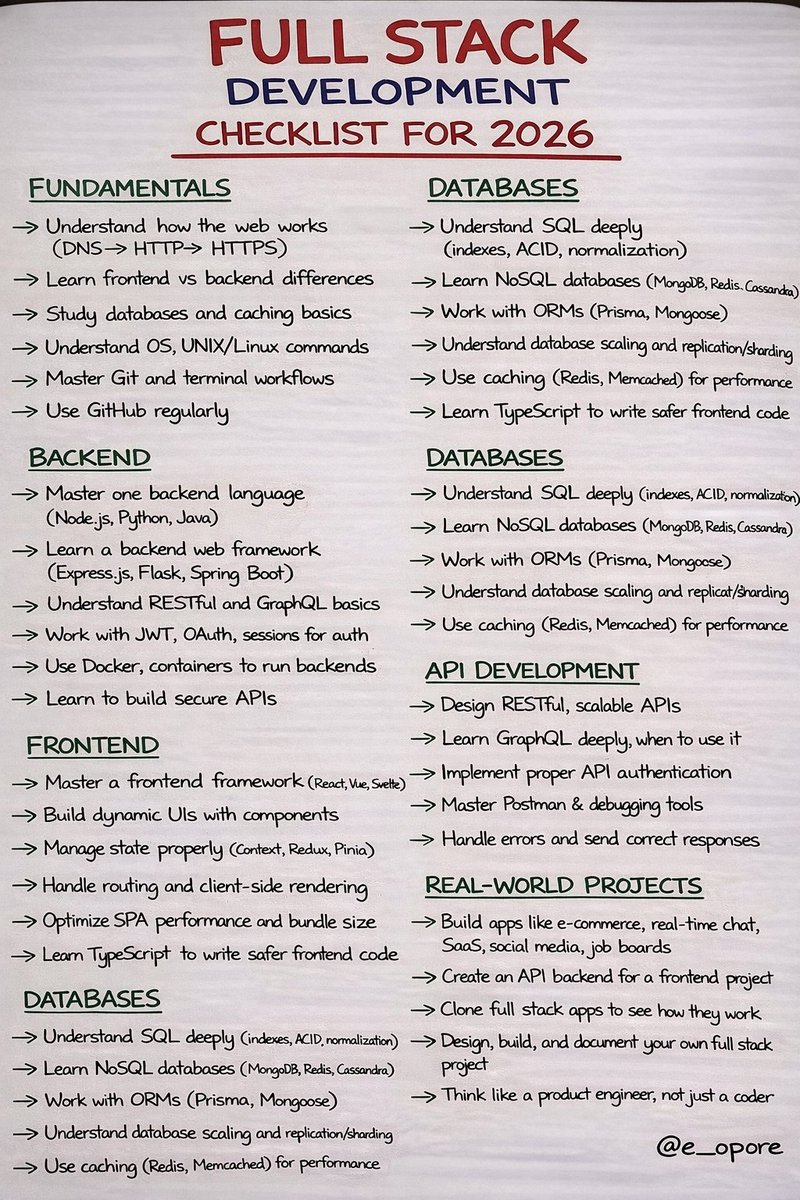 FULL STACK
DEVELOPMENT
CHECKLIST FOR 2026
FUNDAMENTALS
→ Understand how the web works
(DNS → HTTP → HTTPS)
→ Learn frontend vs backend differences
→ Study databases and caching basics
→ Understand OS, UNIX/Linux commands
→ Master Git and terminal workflows
→ Use GitHub regularly
BACKEND
→ Master one backend language
(Node.js, Python, Java)
→ Learn a backend web framework
(Express.js, Flask, Spring Boot)
→ Understand RESTful and GraphQL basics
→ Work with JWT, OAuth, sessions for auth
→ Use Docker, containers to run backends
→ Learn to build secure APIs
FRONTEND
→ Master a frontend framework (React, Vue, Svelte)
→ Build dynamic UIs with components
→ Manage state properly (Context, Redux, Pinia)
→ Handle routing and client-side rendering
→ Optimize SPA performance and bundle size
→ Learn TypeScript to write safer frontend code
DATABASES
→ Understand SQL deeply (indexes, ACID, normalization)
→ Learn NoSQL databases (MongoDB, Redis, Cassandra)
→ Work with ORMs (Prisma, Mongoose)
→ Understand database scaling and replication/sharding
→ Use caching (Redis, Memcached) for performance
DATABASES
→ Understand SQL deeply
(indexes, ACID, normalization)
→ Learn NoSQL databases (MongoDB, Redis. Cassandra)
→ Work with ORMs (Prisma, Mongoose)
→ Understand database scaling and replication/sharding
→ Use caching (Redis, Memcached) for performance
→ Learn TypeScript to write safer frontend code
DATABASES
→ Understand SQL deeply (indexes, ACID, normalization)
→ Learn NoSQL databases (MongoDB, Redis, Cassandra)
→ Work with ORMs (Prisma, Mongoose)
→ Understand database scaling and replicat/sharding
→ Use caching (Redis, Memcached) for performance
API DEVELOPMENT
→ Design RESTful, scalable APIs
→ Learn GraphQL deeply, when to use it
→ Implement proper API authentication
→ Master Postman & debugging tools
→ Handle errors and send correct responses
REAL-WORLD PROJECTS
→ Build apps like e-commerce, real-time chat,
SaaS, social media, job boards
→ Create an API backend for a frontend project
→ Clone full stack apps to see how they work
→ Design, build, and document your own full stack
project
→ Think like a product engineer, not just a coder
@e_opore